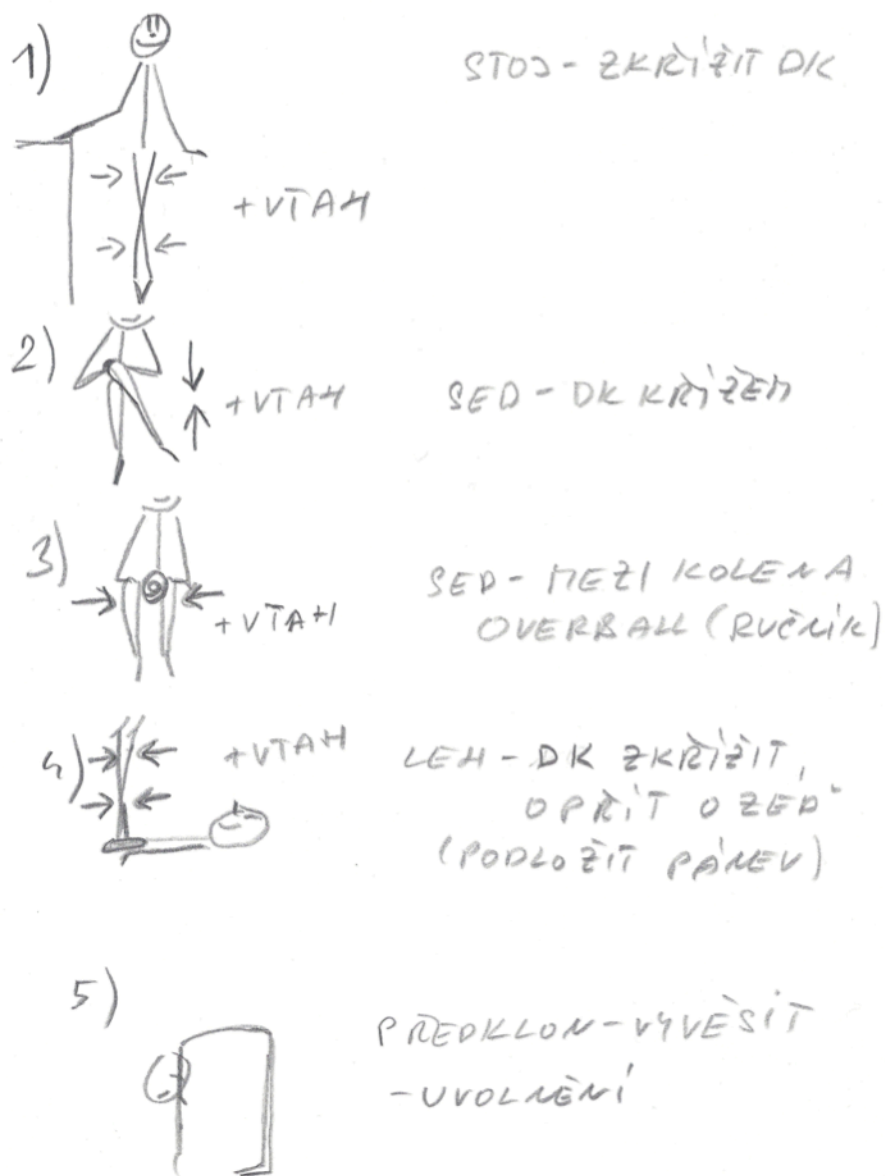 1) STOJ - ZKŘÍŽIT DK
+ VTAH
2) + VTAH SED - DK KŘÍŽEM
3) SED - MEZI KOLENA
OVERBALL (RUČNÍK)
+ VTAH
4) + VTAH LEH - DK ZKŘÍŽIT,
OPŘÍT O ZEĎ
(PODLOŽIT PÁNEV)
5) PŘEDKLON - VYVĚSIT
- UVOLNĚNÍ